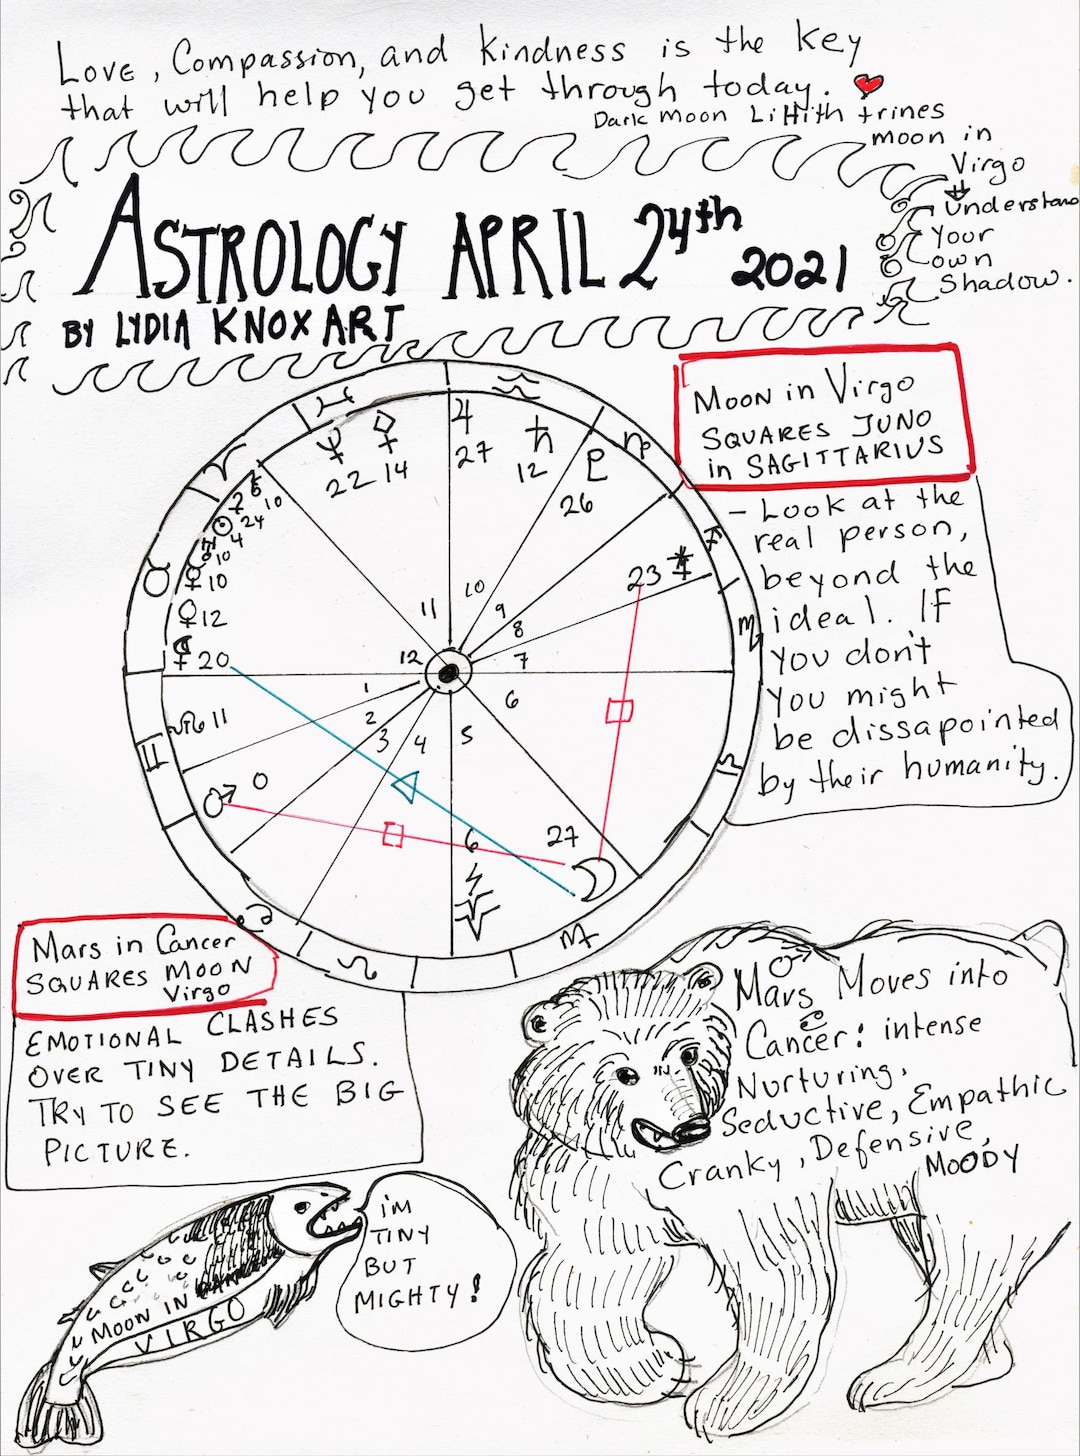 Love, Compassion, and Kindness is the key
that will help you get through today.
Dark Moon Lilith trines
moon in
Virgo
Understand
Your
own
Shadow.
ASTROLOGY APRIL 24th
2021
BY LYDIA KNOX ART
MOON in Virgo
SQUARES JUNO
in SAGITTARIUS
- Look at the
real person,
beyond the
ideal. IF
You don't
You might
be dissapointed
by their humanity.
22 14
27
12
26
10
24
4
10
10
12
20
11
0
23
27
6
1
2
3
4
5
6
7
8
9
10
11
12
Mars in Cancer
SQUARES MOON
Virgo
EMOTIONAL CLASHES
OVER TINY DETAILS.
TRY TO SEE THE BIG
PICTURE.
Mars Moves into
Cancer: intense
Nurturing,
Seductive, Empathic
Cranky, Defensive,
MOODY
i'M
TINY
BUT
MIGHTY!
MOON IN
VIRGO